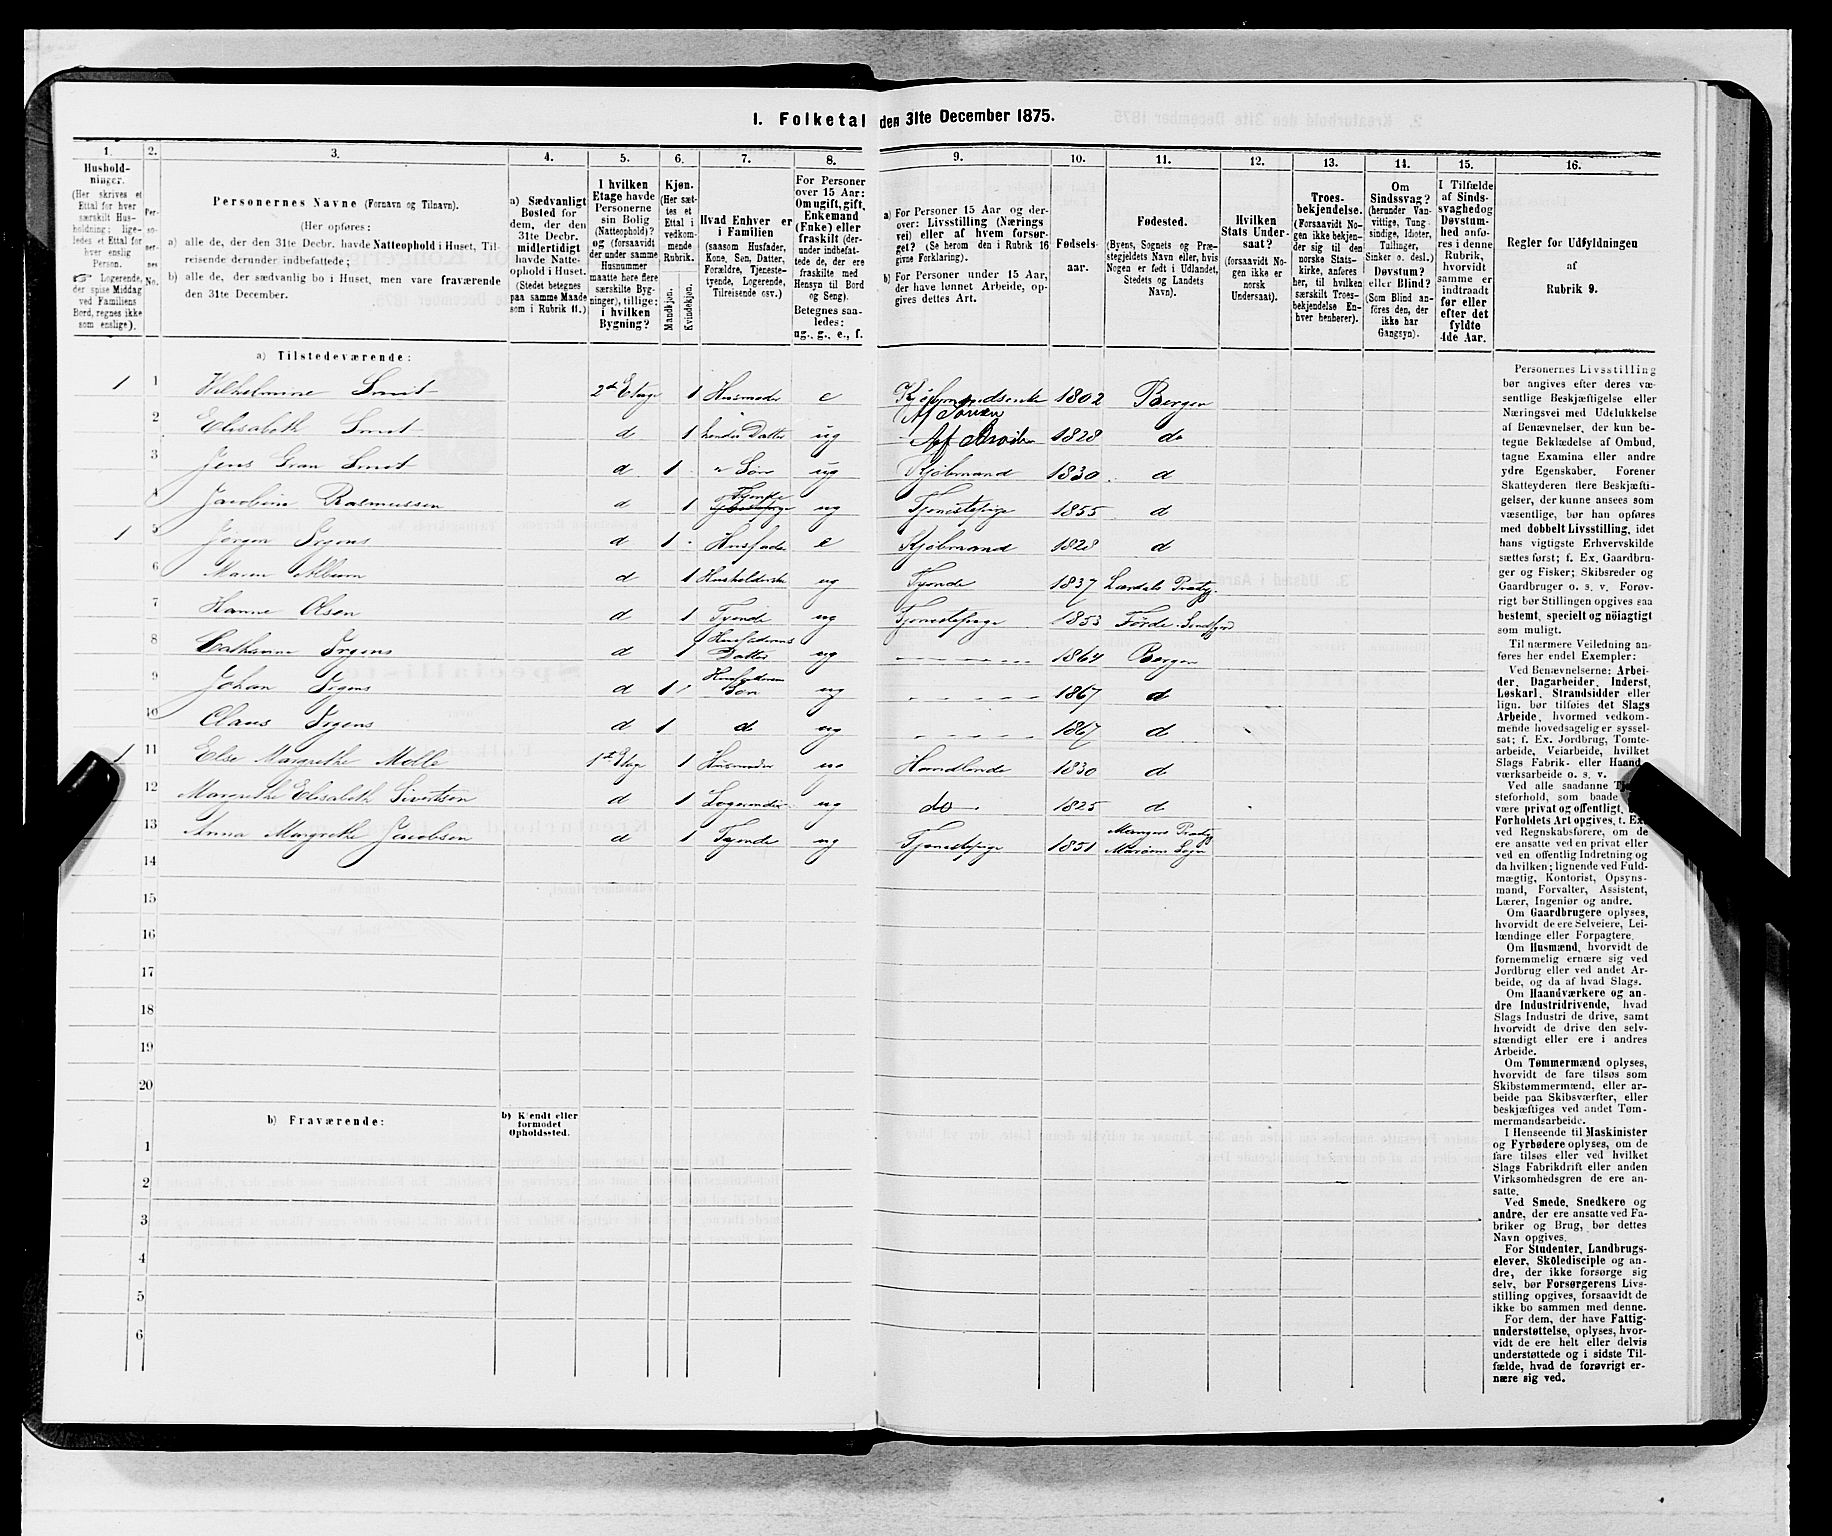 I. Folketal den 31te December 1875.
1. 2. 3. 4. 5. 6. 7. 8. 9. 10. 11. 12. 13. 14. 15. 16.
Hushold-
ninger.
(Her skrives et
Ettal for hver
særskilt Hus-
holdning; lige-
ledes et Ettal for
hver enslig
Person.
☞ Logerende,
der spise Middag
ved Familiens
Bord, regnes ikke
som enslige).
Per-
so-
ner-
nes
No.
Personernes Navne (Fornavn og Tilnavn).
(Her opføres:
a) alle de, der den 31te Decbr. havde Natteophold i Huset, Til-
reisende derunder indbefattede;
b) alle de, der sædvanlig bo i Huset, men vare fraværende
den 31te December.
a) Sædvanligt
Bosted for
dem, der den
31te Decbr.
midlertidigt
havde Natte-
ophold i Huset.
(Stedet betegnes
paa samme Maade
som i Rubrik 11.)
I hvilken
Etage havde
Personerne
sin Bolig
(Natteophold)?
og (forsaavidt
der under samme
Husnummer
maatte høre flere
særskilte Byg-
ninger), tillige:
i hvilken
Bygning?
Kjøn.
(Her sæt-
tes et
Ettal i
vedkom-
mende
Rubrik.
Mandkjøn.
Kvindekjøn.
Hvad Enhver er
i Familien
(saasom Husfader,
Kone, Søn, Datter,
Forældre, Tjeneste-
tyende, Logerende,
Tilreisende osv.)
For Personer
over 15 Aar:
Om ugift, gift,
Enkemand
(Enke) eller
fraskilt (der-
under indbefat-
tede de, der ere
fraskilte med
Hensyn til Bord
og Seng).
Betegnes saa-
ledes:
ug., g., e., f.
a) For Personer 15 Aar og der-
over: Livsstilling (Nærings-
vei) eller af hvem forsør-
get? (Se herom den i Rubrik 16
givne Forklaring).
b) For Personer under 15 Aar,
der have lønnet Arbeide, op-
gives dettes Art.
Fødsels-
aar.
Fødested.
(Byens, Sognets og Præ-
stegjeldets Navn eller, hvis
Nogen er født i Udlandet,
Stedets og Landets
Navn).
Hvilken
Stats Under-
saat?
(forsaavidt No-
gen ikke er
norsk
Undersaat).
Troes-
bekjendelse.
(Forsaavidt No-
gen ikke bekjen-
der sig til den
norske Stats-
kirke, anføres
her, til hvilken
særskilt Troes-
bekjendelse En-
hver henhører).
Om
Sindssvag?
(herunder Van-
vittige, Tung-
sindige, Idioter,
Tullinger,
Sinker o. desl.)
Døvstum?
eller Blind?
(Som Blind an-
føres den, der
ikke har
Gangsyn).
I Tilfælde
af Sinds-
svaghed og
Døvstum-
hed anfø-
res i denne
Rubrik,
hvorvidt
samme er
indtraadt
før eller
efter det
fyldte
4de Aar.
Regler for Udfyldningen
af
Rubrik 9.
a) Tilstedeværende:
1 1 Wilhelmine Smit 2den Etage 1 Husmoder e Kjøbmandsenke 1802 Bergen
Af Sønnen
2 Elisabeth Smit d 1 hendes Datter ug Af Broder 1828 do
3 Jens Gran Smit d 1 " Søn ug Kjøbmand 1830 d
4 Jacobine Rasmussen d 1 Tyende ug Tjenestepige 1855 d
1 5 Jørgen Irgens d 1 Husfader e Kjøbmand 1828 d
6 Maren d 1 Husholderske ug Tyende 1837 Lærdals Prstgj.
7 Hanne Olsen d 1 Tyende ug Tjenestepige 1853 Førde Søndfjord
8 Cathrine Irgens d 1 Husfaderens Datter ug 1864 Bergen
9 Johan Irgens d 1 Husfaderens Søn ug 1867 d
10 Claus Irgens d 1 d ug 1867 d
1 11 Else Margrethe Molle 1ste Etage 1 Husmoder ug Handlende 1830 d
12 Margrethe Elisabeth Sivertsen d 1 Logerende ug do 1825 d
13 Anna Margrethe Jacobsen d 1 Tyende ug Tjenestepige 1851 Mangers Prstgj
Sogn
14
15
16
17
18
19
20
b) Fraværende:
b) Kjendt eller
formodet
Opholdssted.
1
2
3
4
5
6
Personernes Livsstilling
bør angives efter deres væ-
sentlige Beskjæftigelse eller
Næringsvei med Udelukkelse
af Benævnelser, der kun be-
tegne Beklædelse af Ombud,
tagne Examina eller andre
ydre Egenskaber. Forener
Skatteyderen flere Beskjæfti-
gelser, der kunne ansees som
væsentlige, bør han opføres
med dobbelt Livsstilling, idet
hans vigtigste Erhvervskilde
sættes først; f. Ex. Gaardbru-
ger og Fisker; Skibsreder og
Gaardbruger o. s. v. Forøv-
rigt bør Stillingen opgives saa
bestemt, specielt og nøiagtigt
som muligt.
Til nærmere Veiledning an-
føres her endel Exempler:
Ved Benævnelserne: Arbei-
der, Dagarbeider, Inderst,
Løskarl, Strandsidder eller
lign. bør tilføies det Slags
Arbeide, hvormed vedkom-
mende hovedsagelig er syssel-
sat; f. Ex. Jordbrug, Tomte-
arbeide, Veiarbeide, hvilket
Slags Fabrik- eller Haand-
værksarbeide o. s. v.
Ved alle saadanne Tje-
steforhold, som baade
være privat og offentligt,
Forholdets Art opgives, t. Ex.
ved Regnskabsførere, om de
ere ansatte ved en privat eller
ved en offentlig Indretning og
da hvilken; lignende ved Fuld-
mægtig, Kontorist, Opsyns-
mand, Forvalter, Assistent,
Lærer, Ingeniør og andre.
Om Gaardbrugere oplyses,
hvorvidt de ere Selveiere, Lei-
lændinge eller Forpagtere.
Om Husmænd, hvorvidt de
fornemmelig ernære sig ved
Jordbrug eller ved andet Ar-
beide, og da af hvad Slags.
Om Haandværkere og an-
dre Industridrivende, hvad
Slags Industri de drive, samt
hvorvidt de drive den selv-
stændigt eller ere i andres
Arbeide.
Om Tømmermænd oplyses,
hvorvidt de fare tilsøs som
Skibstømmermænd, eller ar-
beide paa Skibsværfter, eller
beskjæftiges ved andet Tøm-
mermandsarbeide.
I Henseende til Maskinister
og Fyrbødere oplyses, om de
fare tilsøs eller ved hvilket
Slags Fabrikdrift eller anden
Virksomhedsgren de ere an-
satte.
Ved Smede, Snedkere og
andre, der ere ansatte ved Fa-
briker og Brug, bør dettes
Navn opgives.
For Studenter, Landbrugs-
elever, Skoledisciple og an-
dre, der ikke forsørge sig
selv, bør Forsørgerens Livs-
stilling opgives, forsaavidt de
ikke bo sammen med denne.
For dem, der have Fattig-
understøttelse, oplyses, hvor-
vidt de ere helt eller delvis
understøttede og i sidste Til-
fælde, hvad de forøvrigt er-
nære sig ved.